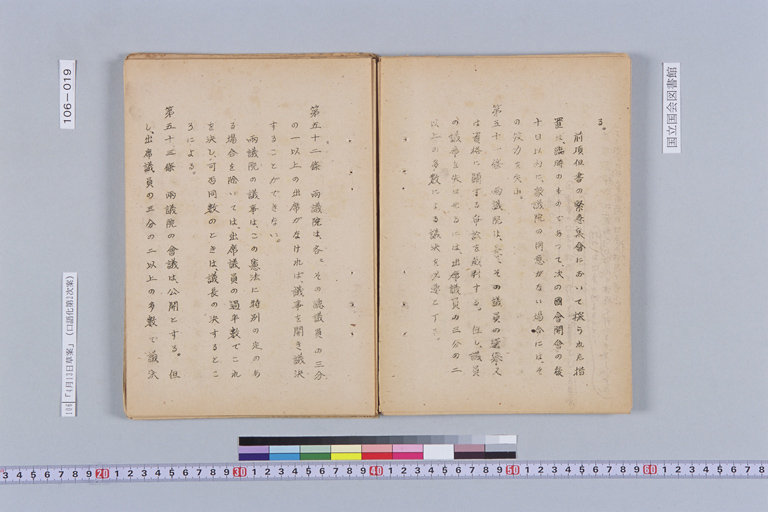 る。
前項但書の緊急集会において採られた措
置は、臨時のものであって、次の國会開会の後
十日以内に、衆議院の同意がない場合には、そ
の效力を失ふ。
第五十一條　兩議院は、各〻その議員の選挙又
は資格に関する争訟を裁判する。但し、議員
の議席を失はせるには、出席議員の三分の二
以上の多数による議決を必要とする。
第五十二條　兩議院は、各〻その總議員の三分
の一以上の出席がなければ、議事を開き議決
することができない。
兩議院の議事は、この憲法に特別の定のあ
る場合を除いては、出席議員の過半数でこれ
を決し、可否同数のときは、議長の決するとこ
ろによる。
第五十三條　兩議院の會議は、公開とする。但
し、出席議員の三分の二以上の多数で議決
国立国会図書館
106-019
106「4月13日草案」（口語化第2次案）
3 4 5 6 7 8 9 20 1 2 3 4 5 6 7 8 9 30 1 2 3 4 5 6 7 8 9 40 1 2 3 4 5 6 7 8 9 50 1 2 3 4 5 6 7 8 9 60 1 2 3 4 5 6 7 8